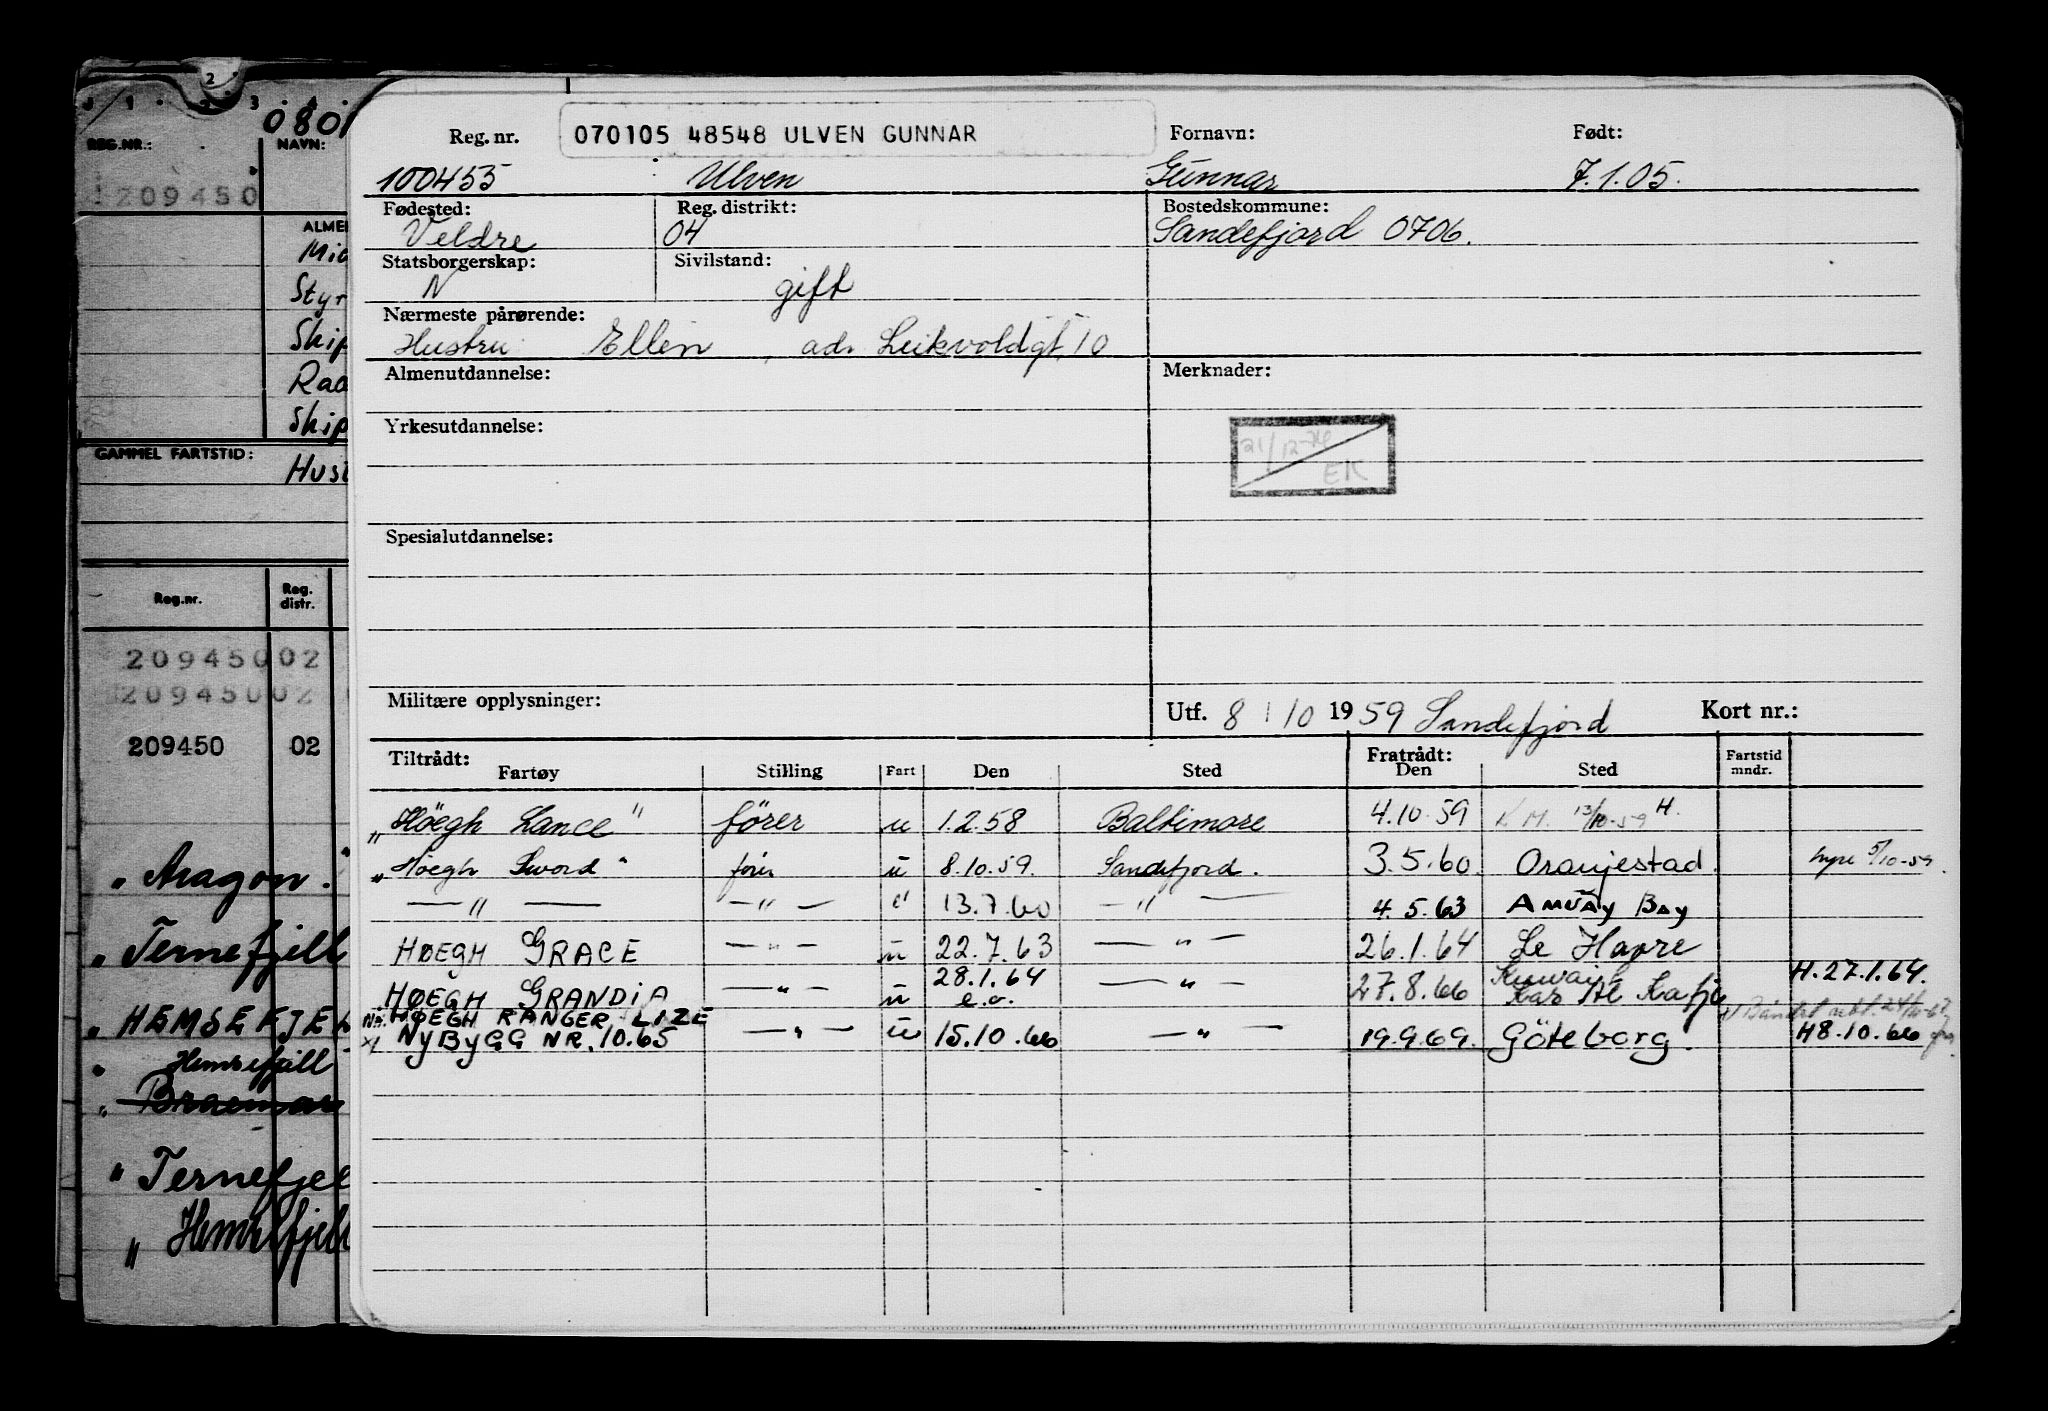 2
0801
REG.NR.:
NAVN:
209450
ALME
Mid
Styr
Skip
Rad
Skip
GAMMEL FARTSTID:
Hust
Reg.nr.
Reg. distr.
209450 02
209450 02
209450 02
„ Aragon. "
„ Ternefjell
„ HEMSEFJEL
„ Hemsefjell
„ Braemar
" Ternefjel
„ Hemsefjell
Reg. nr. 070105 48548 ULVEN GUNNAR Fornavn: Født:
100455 Ulven Gunnar 7.1.05.
Fødested: Reg. distrikt: Bostedskommune:
Veldre 04 Sandefjord 0706.
Statsborgerskap: Sivilstand:
N gift
Nærmeste pårørende:
Hustru Ellen , adr Leikvoldgt, 10
Almenutdannelse: Merknader:
Yrkesutdannelse:
21/12-
EK
Spesialutdannelse:
Militære opplysninger: Utf. 8 / 10 1959 Sandefjord Kort nr.:
Tiltrådt: Fratrådt: Fartstid mndr.
Fartøy Stilling Fart Den Sted Den Sted
„Höegh Lance" förer u 1.2.58 Baltimore 4.10.59 13/10-59 H
„Höegh Sword" förer u 8.10.59. Sandefjord. 3.5.60. Oranjestad. hyre 5/10-59.
— " — — " — " 13.7.60 — " — 4.5.63 AMUAY BAY
HØEGH GRACE — " — u 22.7.63 — " — 26.1.64 Le Havre
HØEGH GRANDIA — " — u 28.1.64 e.o. — " — 27.8.66 Kuwait Ras Al Kafji H.27.1.64.
HØEGH RANGER LIZE
NYBYGG NR. 10.65 — " — u 15.10.66 — " — 19.9.69. Göteborg. H8.10.66